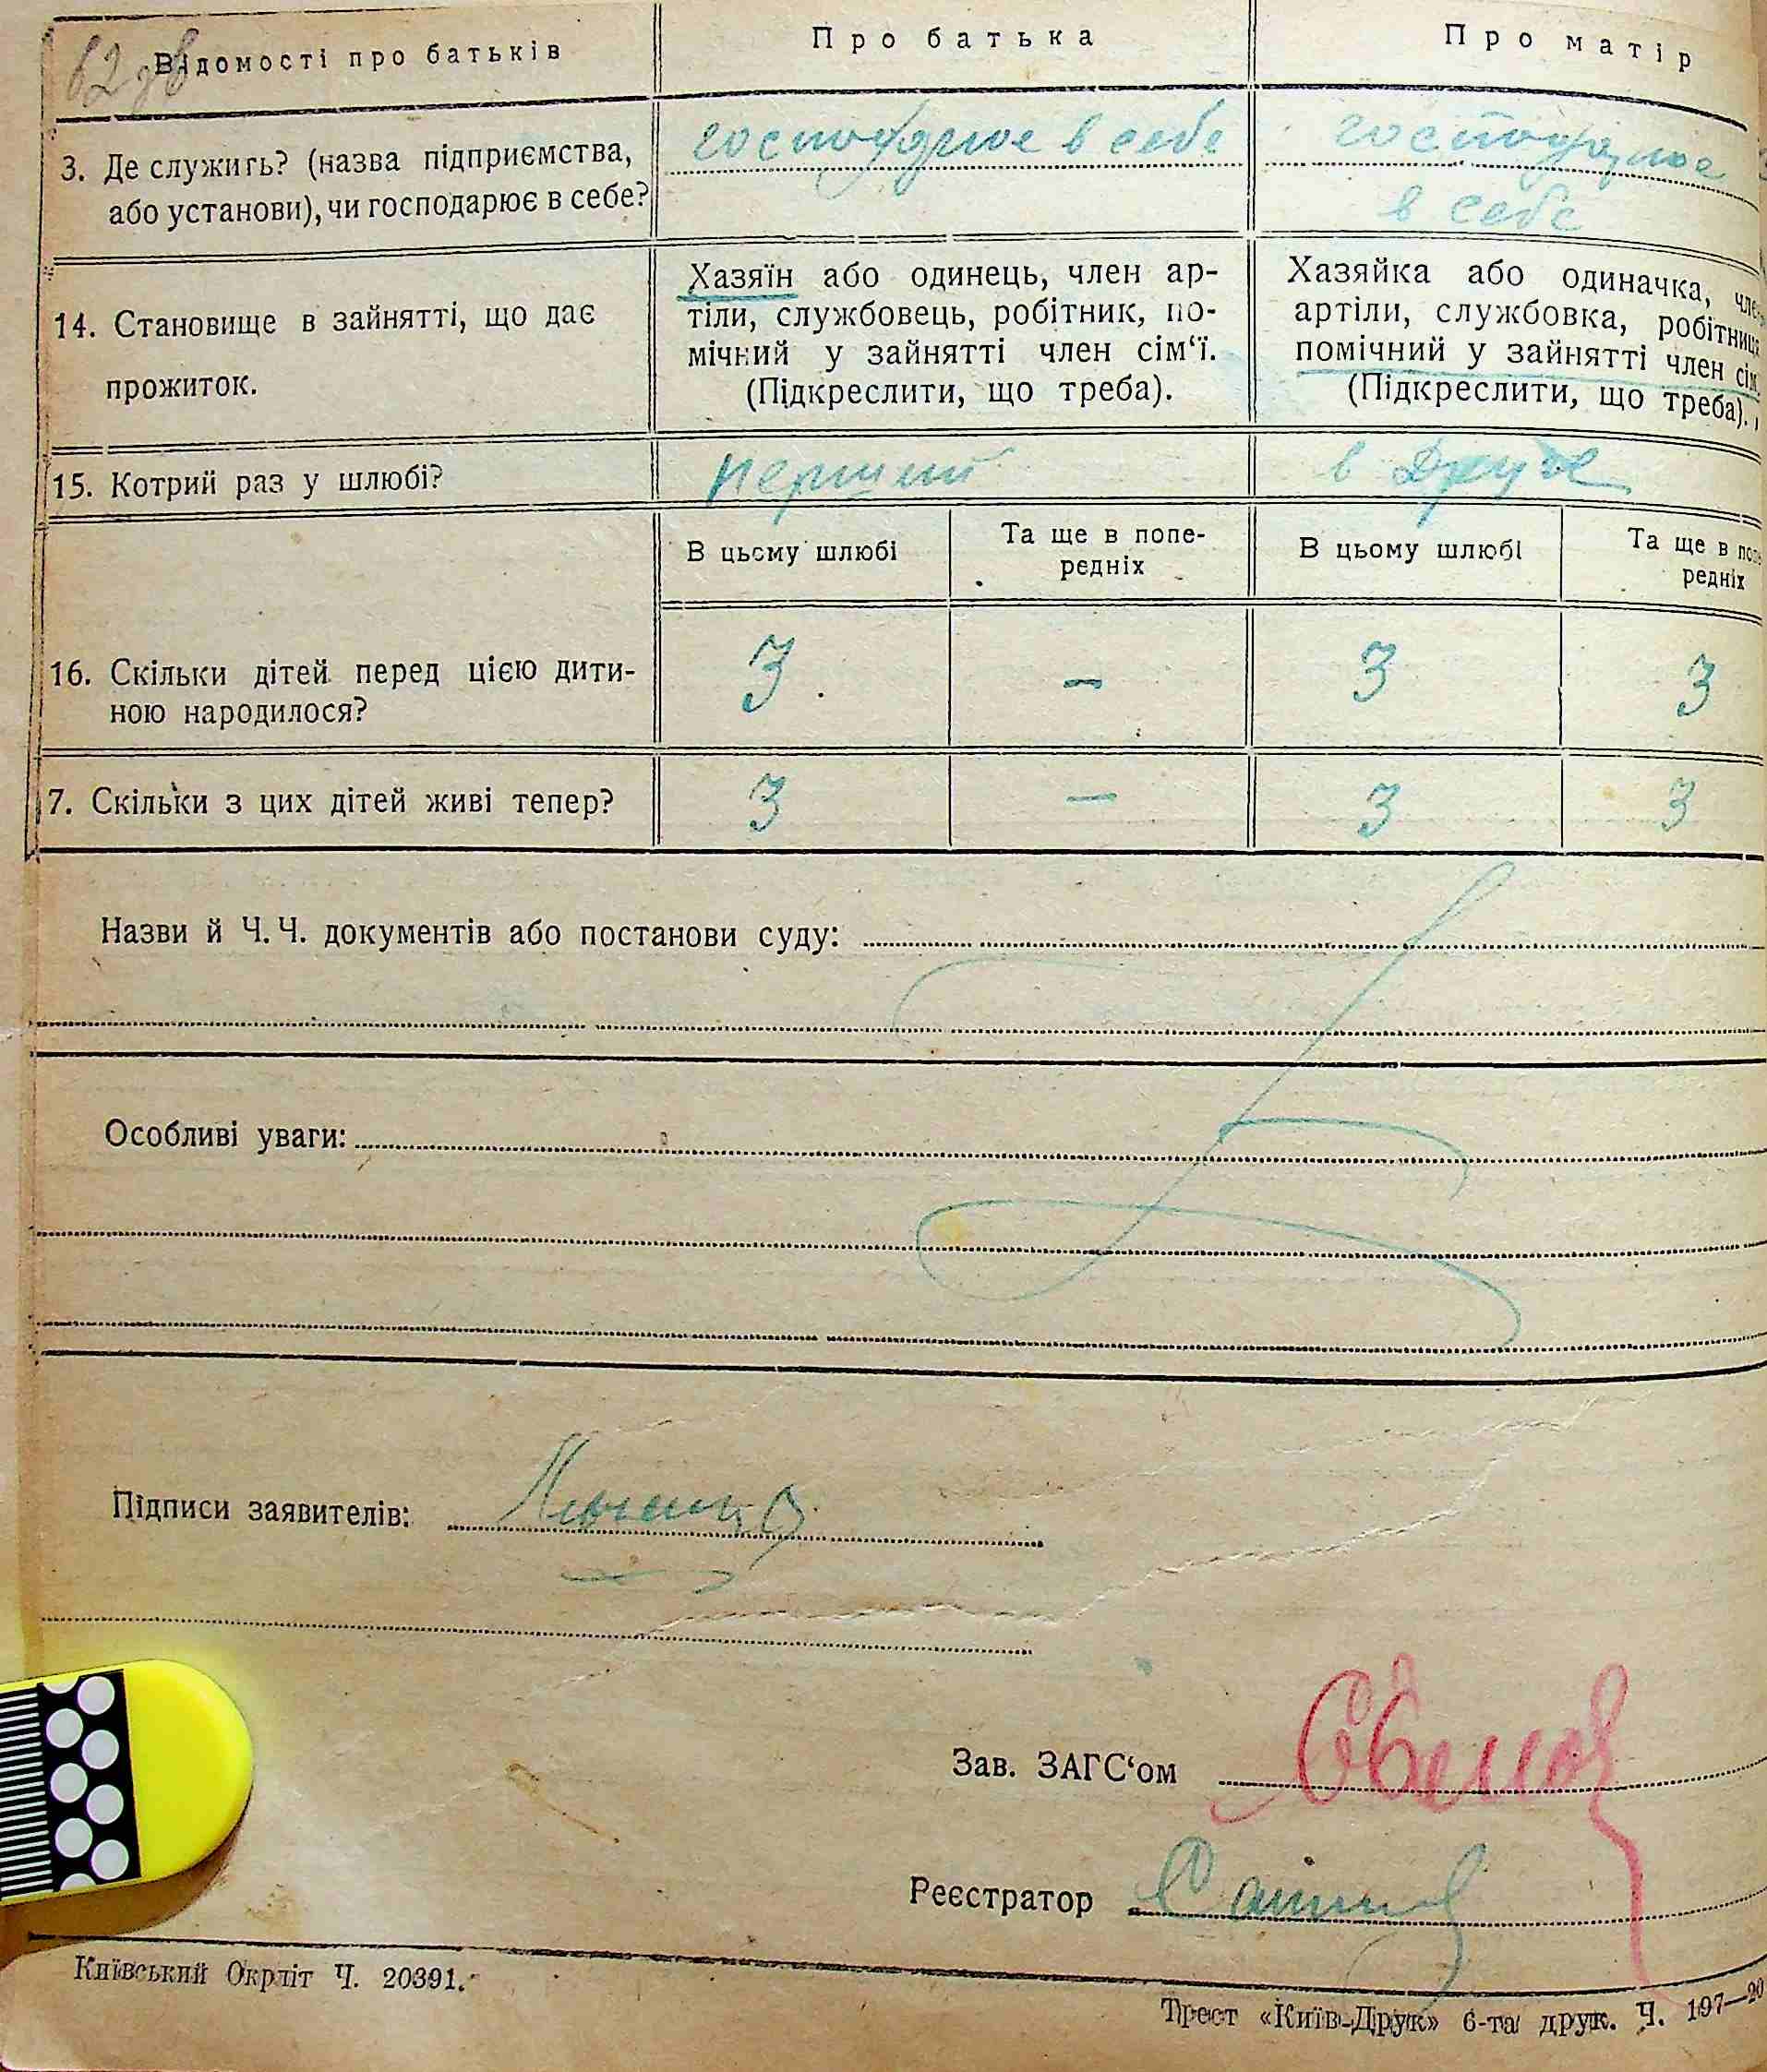 62 зв
Відомості про батьків
Про батька
Про матір
3. Де служить? (назва підприємства,
або установи), чи господарює в себе?
господарює в себе
господарює
в себе
14. Становище в зайнятті, що дає
прожиток.
Хазяїн або одинець, член ар-
тіли, службовець, робітник, по-
мічний у зайнятті член сім‘ї.
(Підкреслити, що треба).
Хазяйка або одиначка, член
артіли, службовка, робітниця
помічний у зайнятті член сім
(Підкреслити, що треба).
15. Котрий раз у шлюбі?
перший
в друге
В цьому шлюбі
Та ще в попе-
редніх
В цьому шлюбі
Та ще в попе
редніх
16. Скільки дітей перед цією дити-
ною народилося?
3
—
3
3
7. Скільки з цих дітей живі тепер?
3
—
3
3
Назви й Ч.Ч. документів або постанови суду:
Особливі уваги:
Підписи заявителів:
Зав. ЗАГС‘ом
Реєстратор
Київський Окрліт Ч. 20391.
Трест «Київ-Друк» 6-та друк. Ч. 197—20